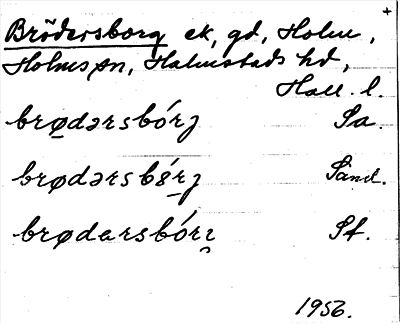 Brödersborg ek, gd, Holm,
Holms sn, Halmstads hd,
Hall. l.
brødərsbórj Sa.
brødərsbórj Sand.
brødarsbórj Sf.
1956.